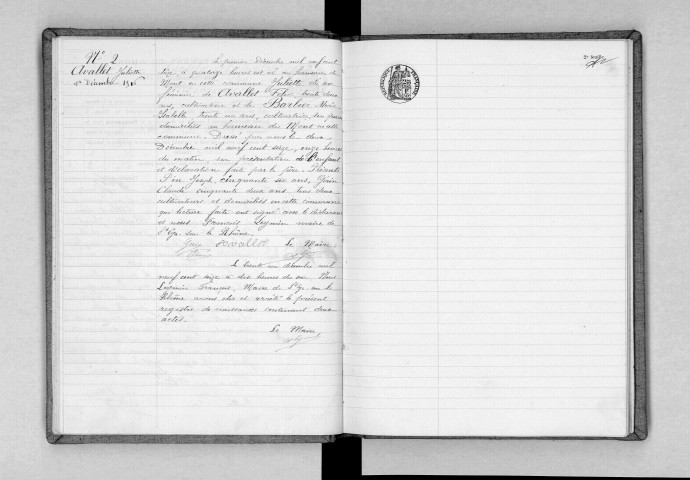 Nº 2
Avallet Juliette
1er Décembre 1916
Le premier Décembre mil neuf cent
seize, à quatorze heures est né au hameau de
Mont en cette commune Juliette du sexe
féminin de Avallet Félix trente deux
ans, cultivateur et de Barlier Marie
Isabelle trente un ans, cultivatrice, son épouse
domiciliés au hameau du Mont en cette
commune. Dressé par nous le deux
Décembre mil neuf cent seize, onze heures
du matin, sur présentation de l'enfant
et déclaration faite par le père. Présents
Joseph, cinquante six ans,
Claude cinquante deux ans tous deux
cultivateurs et domiciliés en cette commune
qui lecture faite ont signé avec le déclarant
et nous François maire de
sur le Rhône.
Avallet Le Maire
Le trente un décembre mil
neuf cent seize à dix heures du soir Nous
François, Maire de sur le
Rhône avons clos et arrêté le présent
registre de naissances contenant deux
actes.
Le Maire
2e feuille